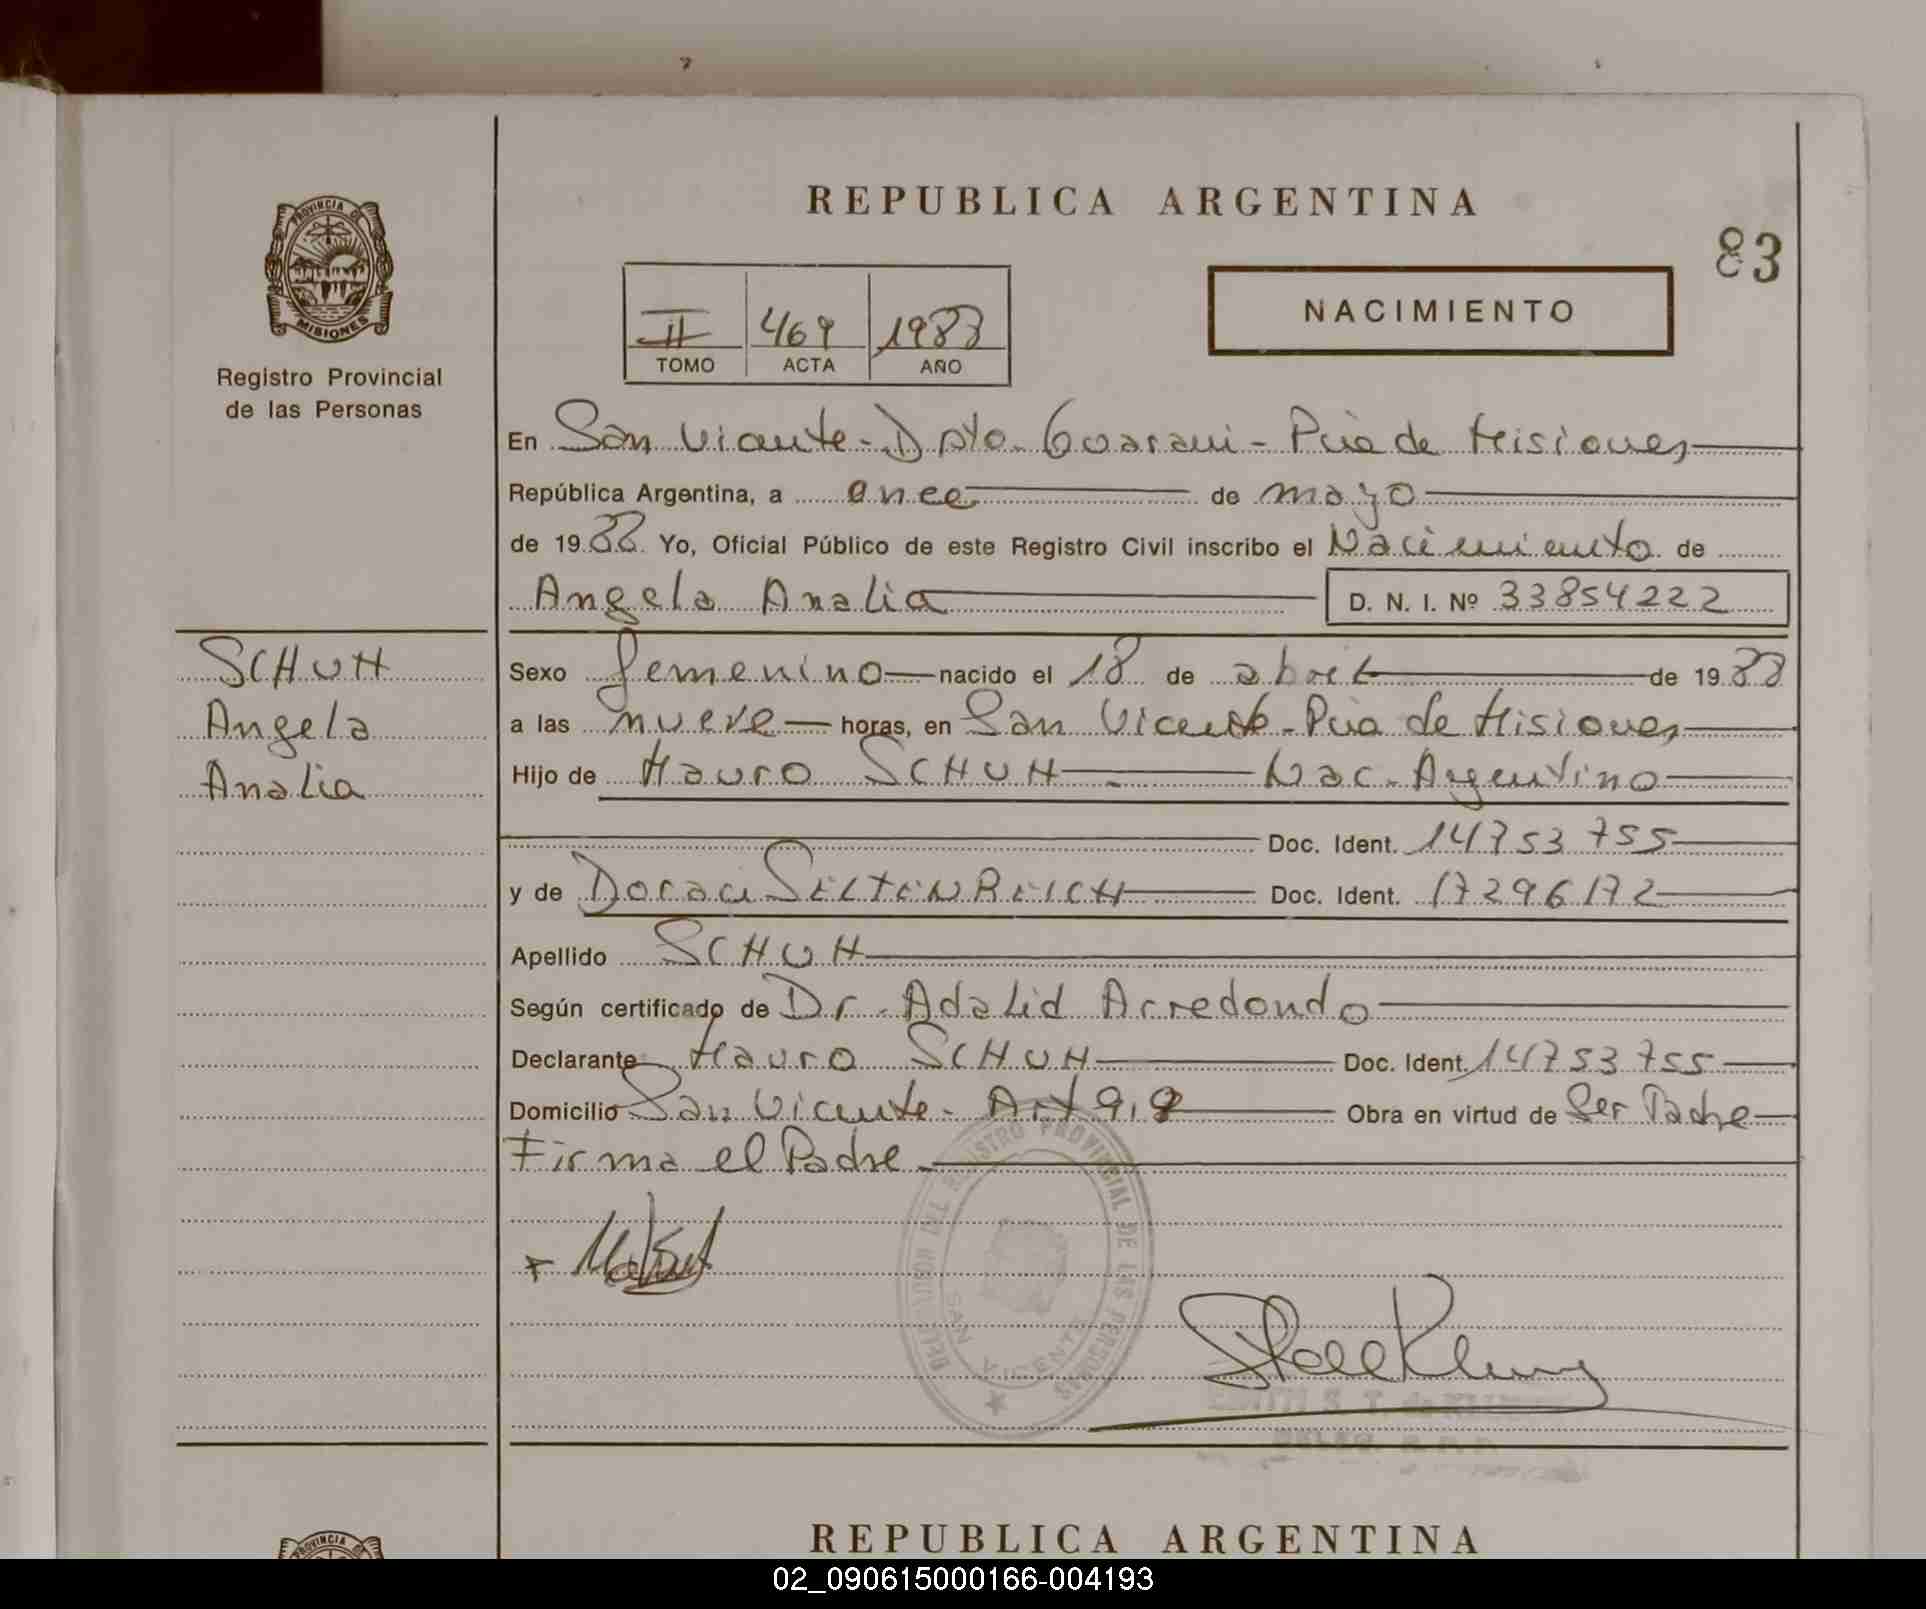 REPUBLICA ARGENTINA
83
PROVINCIA DE
MISIONES
Registro Provincial
de las Personas
II 469 1988
TOMO ACTA AÑO
NACIMIENTO
En San Vicente - Dpto. Guarani - Pcia de Misiones
República Argentina, a once de mayo
de 1988 Yo, Oficial Público de este Registro Civil inscribo el Nacimiento de
Angela Analia D. N. I. Nº 33854222
SCHUH
Angela
Analia
Sexo femenino nacido el 18 de abril de 1988
a las nueve horas, en San Vicente - Pcia de Misiones
Hijo de Mauro SCHUH - Nac. Argentino
Doc. Ident. 14753755
y de Doraci SELTENREICH Doc. Ident. 17296172
Apellido SCHUH
Según certificado de Dr. Adalid Arredondo
Declarante Mauro SCHUH Doc. Ident. 14753755
Domicilio San Vicente - Art 9,9 Obra en virtud de Ser Padre
Firma el Padre
REGISTRO PROVINCIAL DE LAS PERSONAS
SAN VICENTE
REPUBLICA ARGENTINA
PROVINCIA
02_090615000166-004193